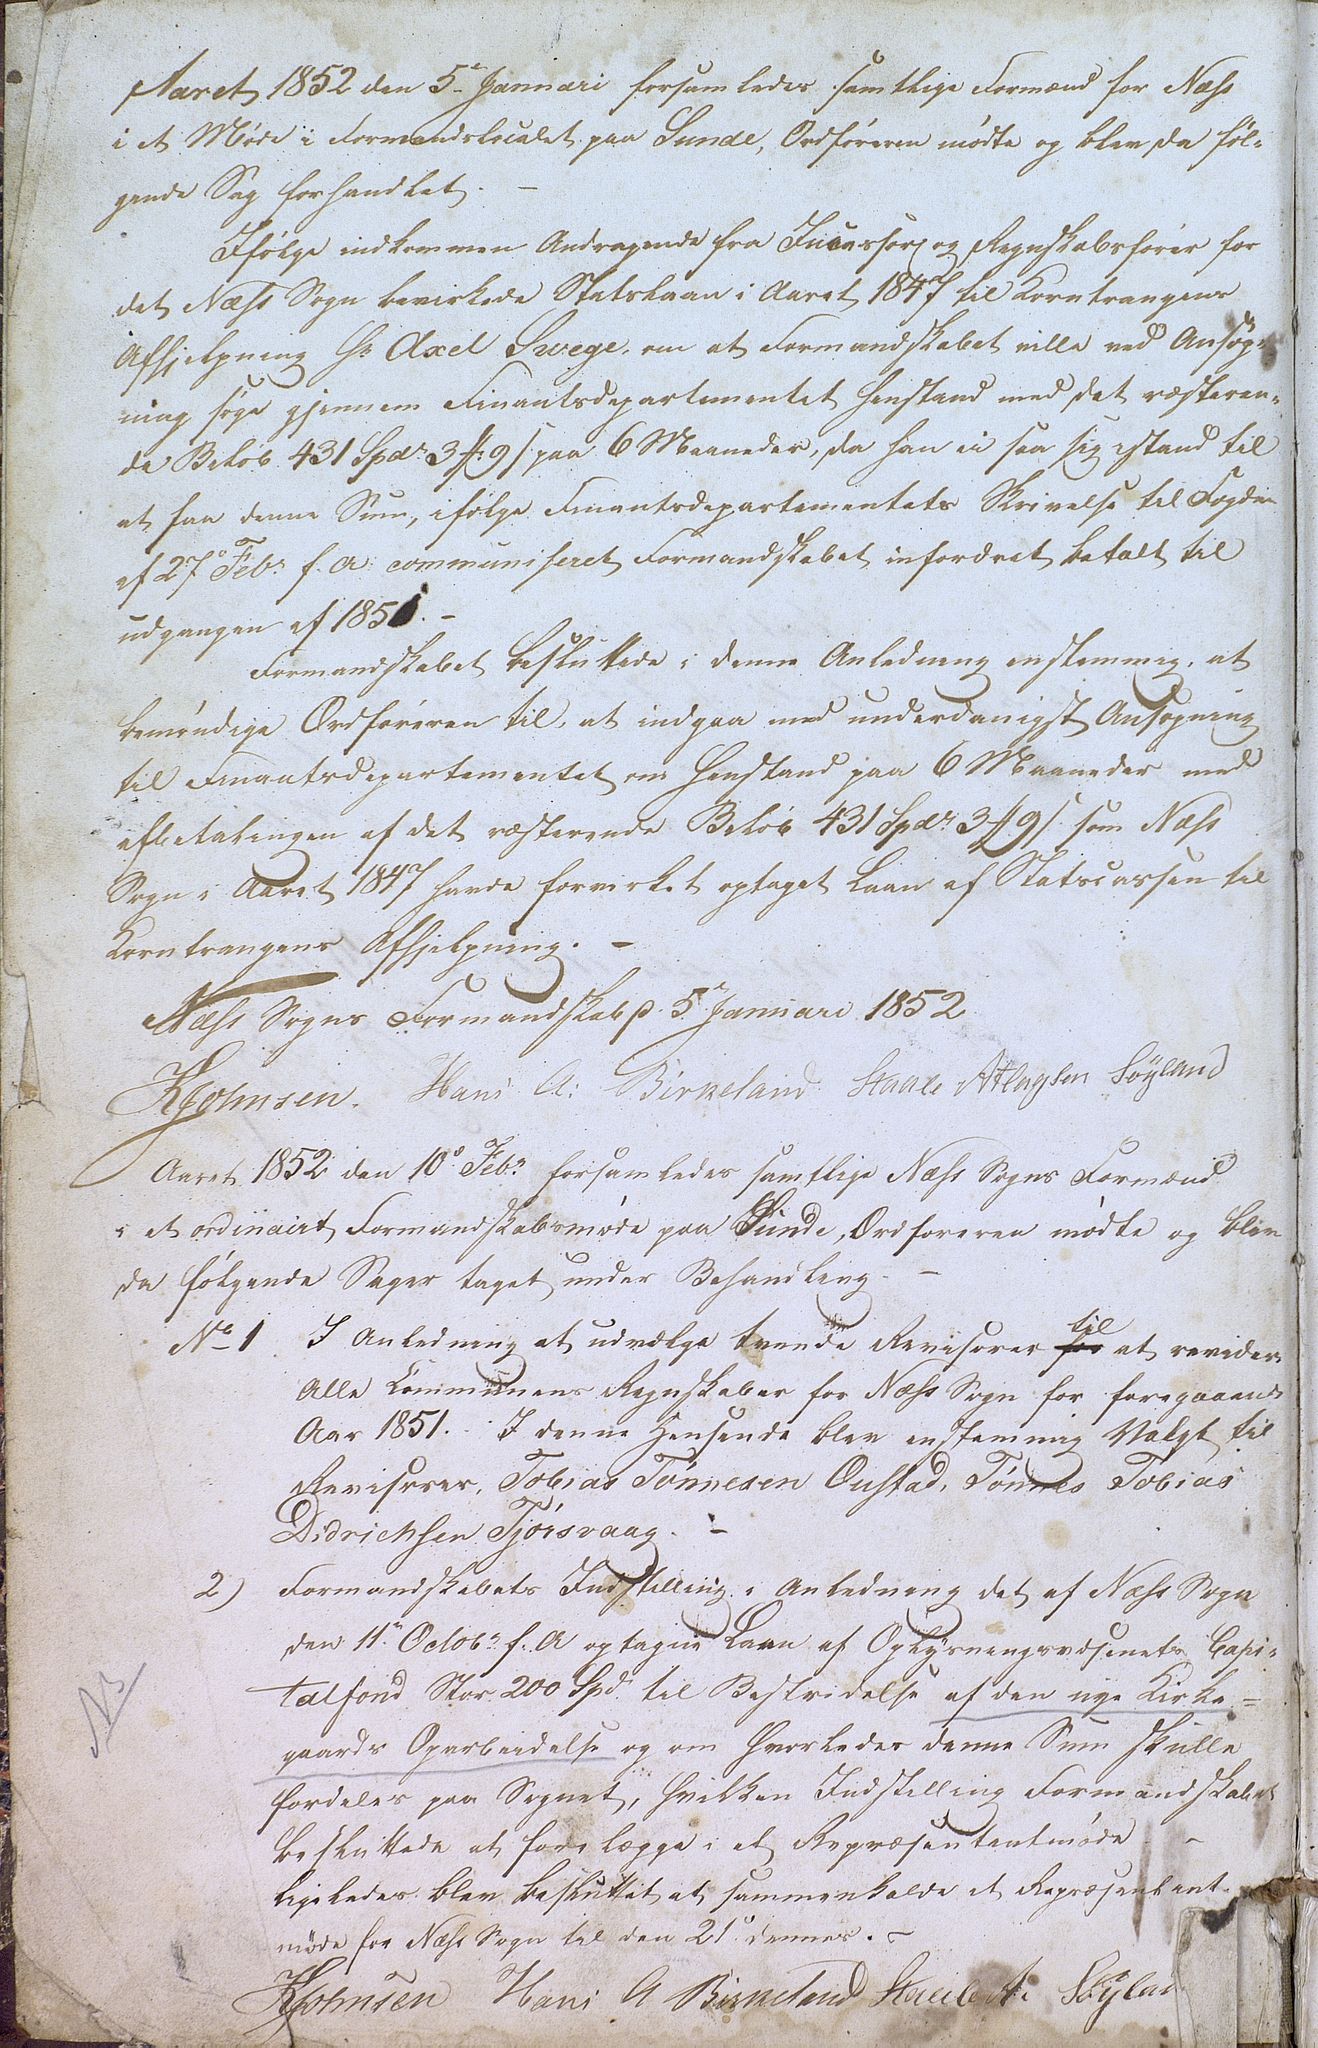 Aaret 1852 den 5te Januari forsamledes samtlige Formænd for Næss
i et Møde i Formandslocalet paa Sunde, Ordføreren mødte og blev da føl-
gende Sag forhandlet. —
Ifølge indkommen Andragende fra Incassor og Regnskabsfører for
det Næss Sogn bevirkede Statslaan i Aaret 1847 til Korntrangens
Afhjelpning Hr Axel Svege, om at Formandskabet ville ved Ansøg-
ning søge gjennem Finantsdepartementet Henstand med det resteren-
de Beløb 431 Spdr 3 # 9 s paa 6 Maaneder, da han ei saa sig istand til
at faa denne Sum, ifølge Finantsdepartementets Skrivelse til Fogden
af 27de Febr f. A. communiseret Formandskabet infordret betalt til
udgangen af 1851. —
Formandskabet besluttede i denne Anledning enstemmig, at
bemyndige Ordføreren til, at indgaa med underdanigst Ansøgning
til Finantsdepartementet om Henstand paa 6 Maaneder med
afbetalingen af det resterende Beløb 431 Spdr 3 # 9 s som Næss
Sogn i Aaret 1847 havde forvirket optaget Laan af Statscassen til
Korntrangens Afhjelpning. —
Næss Sogns Formandskab d. 5te Januari 1852
KJohnsen. Hans A: Birkeland Staale Atlagsen Søyland
Aaret 1852 den 10de Febr forsamledes samtlige Næss Sogns Formænd
i et ordinairt Formandskabsmøde paa Sunde, Ordføreren mødte og blev
da følgende Sager taget under Behandling. —
No 1 I Anledning at udvælge tvende Revisorer for til at revidere
Alle Communens Regnskaber for Næss Sogn for foregaaende
Aar 1851. - I denne Henseende blev enstemmig Valgt til
Revisorer, Tobias Tønnesen Oustad, Tønnes Tobias
Didrichsen Tjørsvaag. —
2) Formandskabets Indstilling i Anledning det af Næss Sogn
den 11te Octobr f. A optagne Laan af Oplysningsvæsenets Capi-
talfond Stor 200 Spd. til Bestridelse af den nye Kirke-
gaards Oparbeidelse og om hvorledes denne Sum skulle
fordeles paa Sognet, hvilken Indstilling Formandskabet
besluttede at fore lægge i et Repræsentantmøde —
ligeledes blev besluttet at sammenkalde et Repræsentant-
møde for Næss Sogn til den 21de dennes. —
KJohnsen Hans A Birkeland Staale At. Søylan
NB